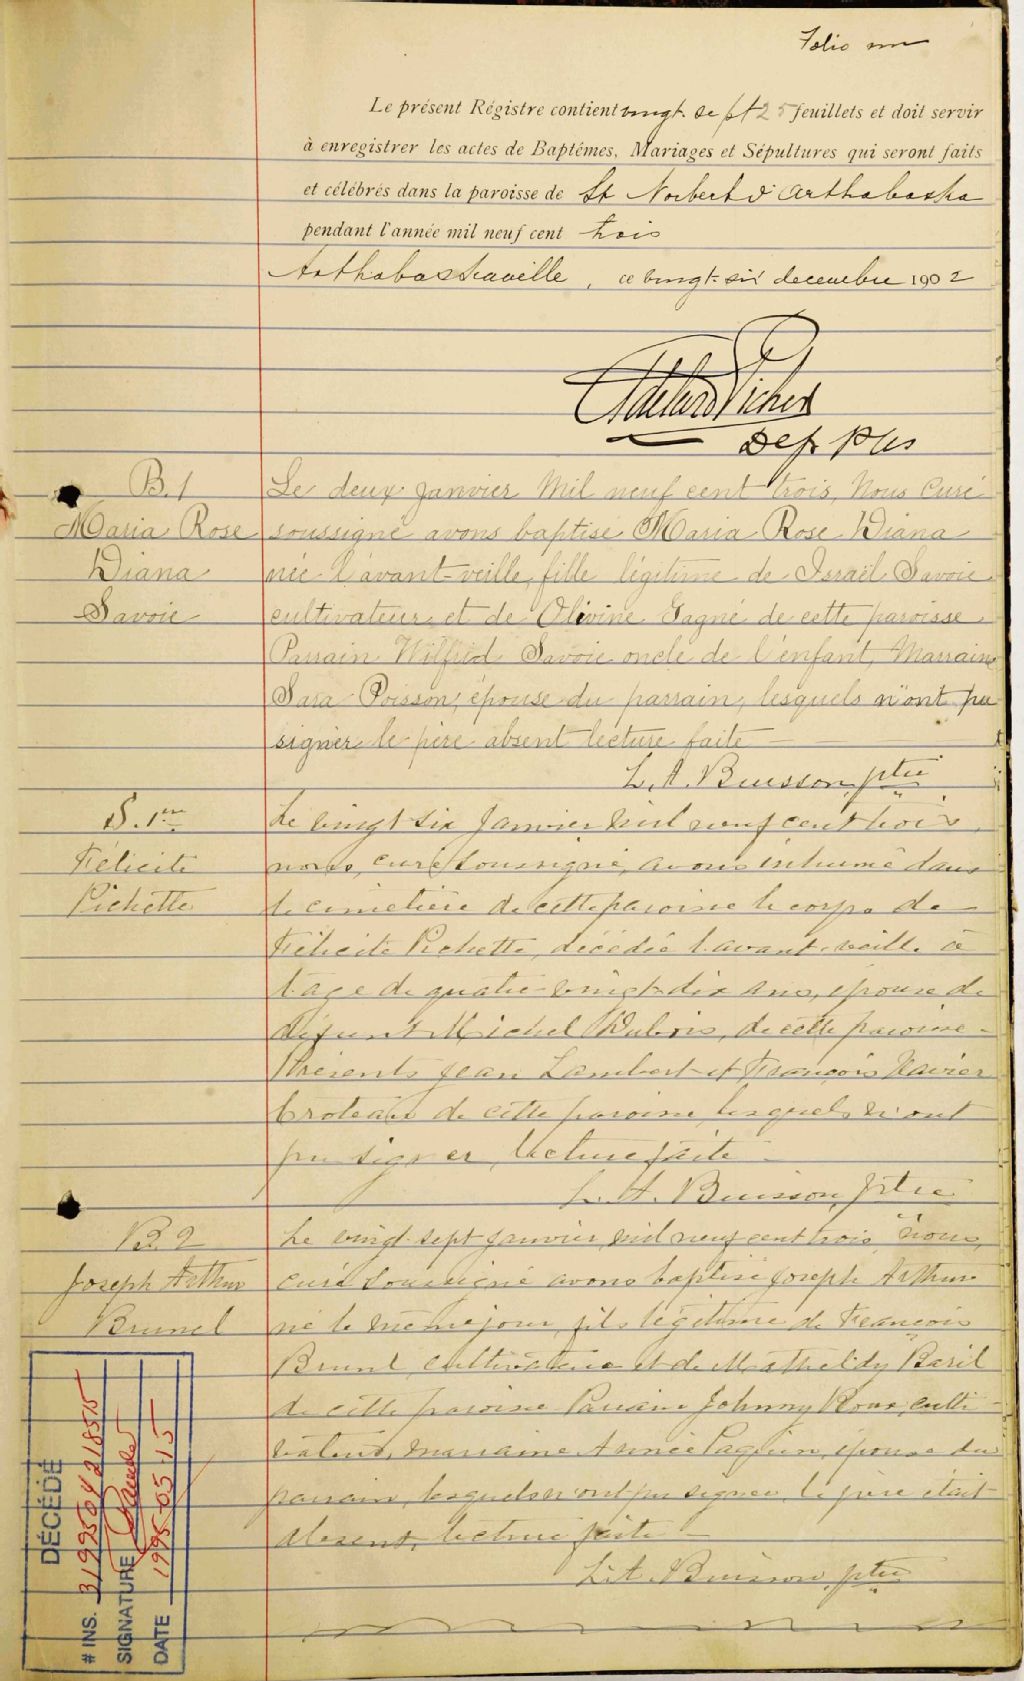 Folio un
Le présent Régistre contient vingt sept 25 feuillets et doit servir
à enregistrer les actes de Baptêmes, Mariages et Sépultures qui seront faits
et célébrés dans la paroisse de St Norbert d'Arthabaska
pendant l'année mil neuf cent trois
Arthabaskaville, ce vingt-six decembre 1902
Adelard Picher
Dep P C S
B. 1
Maria Rose
Diana
Savoie
Le deux janvier mil neuf cent trois, Nous Curé
soussigné avons baptisé Maria Rose Diana
née l'avant-veille, fille légitime de Israël Savoie
cultivateur, et de Olivine Gagné de cette paroisse.
Parrain Wilfrid Savoie oncle de l'enfant, Marraine
Sara Poisson, épouse du parrain, lesquels n'ont pu
signer le père absent lecture faite
L. A. Buisson, ptre
S. 1re
Félicité
Pichette
Le vingt six janvier mil neuf cent trois,
nous, curé soussigné, avons inhumé dans
le cimetière de cette paroisse le corps de
Félicité Pichette, décédée l'avant-veille à
l'âge de quatre-vingt-dix ans, épouse de
défunt Michel Dubois, de cette paroisse.
Présents Jean Lambert et François Xavier
Croteau de cette paroisse, lesquels n'ont
pu signer, lecture faite
L. A. Buisson, ptre
B. 2
Joseph Arthur
Brunel
Le vingt-sept janvier mil neuf cent trois, nous,
curé soussigné avons baptisé Joseph Arthur
né le même jour, fils légitime de François
Brunel, cultivateur et de Matheldy Baril
de cette paroisse Parrain Johnny Roux, culti-
vateur, marraine Année Paquin, épouse du
parrain, lesquels n'ont pu signer le père était
absent, lecture faite
L. A. Buisson, ptre
DÉCÉDÉ
# INS. 3199504218515
SIGNATURE
DATE 1995-05-15